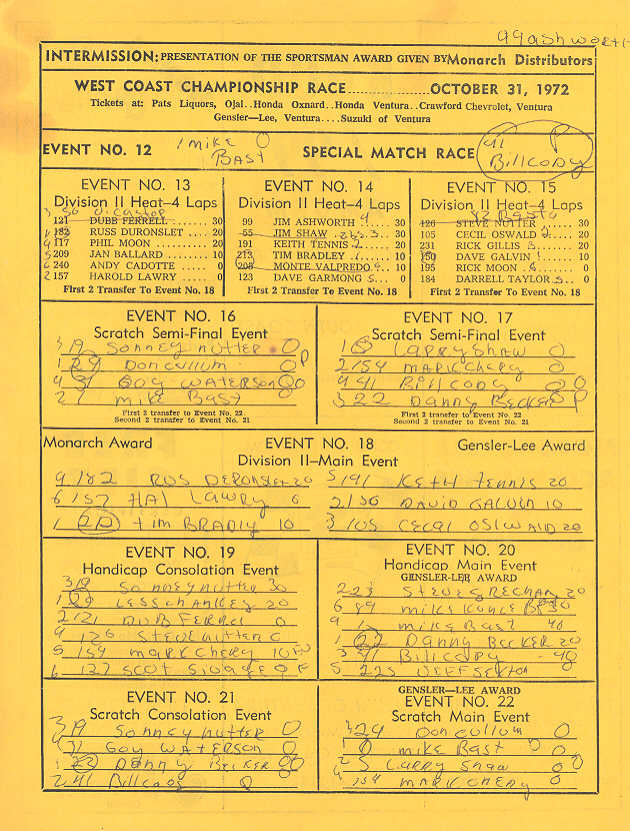 99 ashworth
INTERMISSION: PRESENTATION OF THE SPORTSMAN AWARD GIVEN BY Monarch Distributors
WEST COAST CHAMPIONSHIP RACE.......................OCTOBER 31, 1972
Tickets at: Pats Liquors, Ojai..Honda Oxnard..Honda Ventura..Crawford Chevrolet, Ventura
Gensler—Lee, Ventura....Suzuki of Ventura
EVENT NO. 12 1 mike Bast 0 SPECIAL MATCH RACE 41 Billcody P
EVENT NO. 13
Division II Heat—4 Laps
3 50
121 DUBB FERRELL ........ 30
182 RUSS DURONSLET .. 20
117 PHIL MOON .......... 20
5 209 JAN BALLARD ........ 10
6 240 ANDY CADOTTE ..... 0
2 157 HAROLD LAWRY ..... 0
First 2 Transfer To Event No. 18
EVENT NO. 14
Division II Heat—4 Laps
99 JIM ASHWORTH 4 .... 30
55 JIM SHAW .... 30
191 KEITH TENNIS 2 ..... 20
213 TIM BRADLEY 1 ..... 10
208 MONTE VALPREDO .. 10
123 DAVE GARMONG 5 ... 0
First 2 Transfer To Event No. 18
EVENT NO. 15
Division II Heat—4 Laps
82
126 STEVE NUTTER ..... 30
105 CECIL OSWALD 2 ..... 20
231 RICK GILLIS 3 ........ 20
150 DAVE GALVIN 1 ...... 10
195 RICK MOON ....... 0
184 DARRELL TAYLOR 5 .. 0
First 2 Transfer To Event No. 18
EVENT NO. 16
Scratch Semi-Final Event
3 19 Sonney nutter 0
1 29 Don cullum 0 P
4 71 Goy WATERSON 0 0
2 1 mike Bast 0
First 2 transfer to Event No. 22
Second 2 transfer to Event No. 21
EVENT NO. 17
Scratch Semi-Final Event
1 5 LARRY Shaw 0
2 154 MARK Chery 0
4 41 Bill cody 0 0
3 22 Danny BECKER 0 P
First 2 transfer to Event No. 22
Second 2 transfer to Event No. 21
Monarch Award EVENT NO. 18 Gensler-Lee Award
Division II—Main Event
4 182 RUS DERONSLET 20
6 157 HAL LAWRY 0
1 212 tim BRADLY 10
5 191 KETH tennis 20
2 150 DAVID GALVIN 10
3 105 CECAL OSIWALD 20
EVENT NO. 19
Handicap Consolation Event
3 19 Sonney nutter 30
1 29 LESS chankey 20
2 121 DUB FERREL 0
4 126 STEVE nutter 0
5 154 MARK Chery 10
6 127 SCOT SIVAGE 0 F
EVENT NO. 20
Handicap Main Event
GENSLER-LEE AWARD
2 23 STEVE GRECHAN 20
6 89 mike KONLE 30
4 1 mike BAST 40
1 22 Danny BECKER 20
3 41 Bill copy - 40
5 225 JEFF SEXTON
EVENT NO. 21
Scratch Consolation Event
3 19 Sonney nutter 0
4 71 Goy WATERSON 0
1 22 Danny BECKER 0 0
2 41 Bill coos 0
GENSLER—LEE AWARD
EVENT NO. 22
Scratch Main Event
3 29 Don cullum 0
1 mike BAST 0 0
2 5 LARRY Shaw 0 0
4 154 MARK CHERY 0